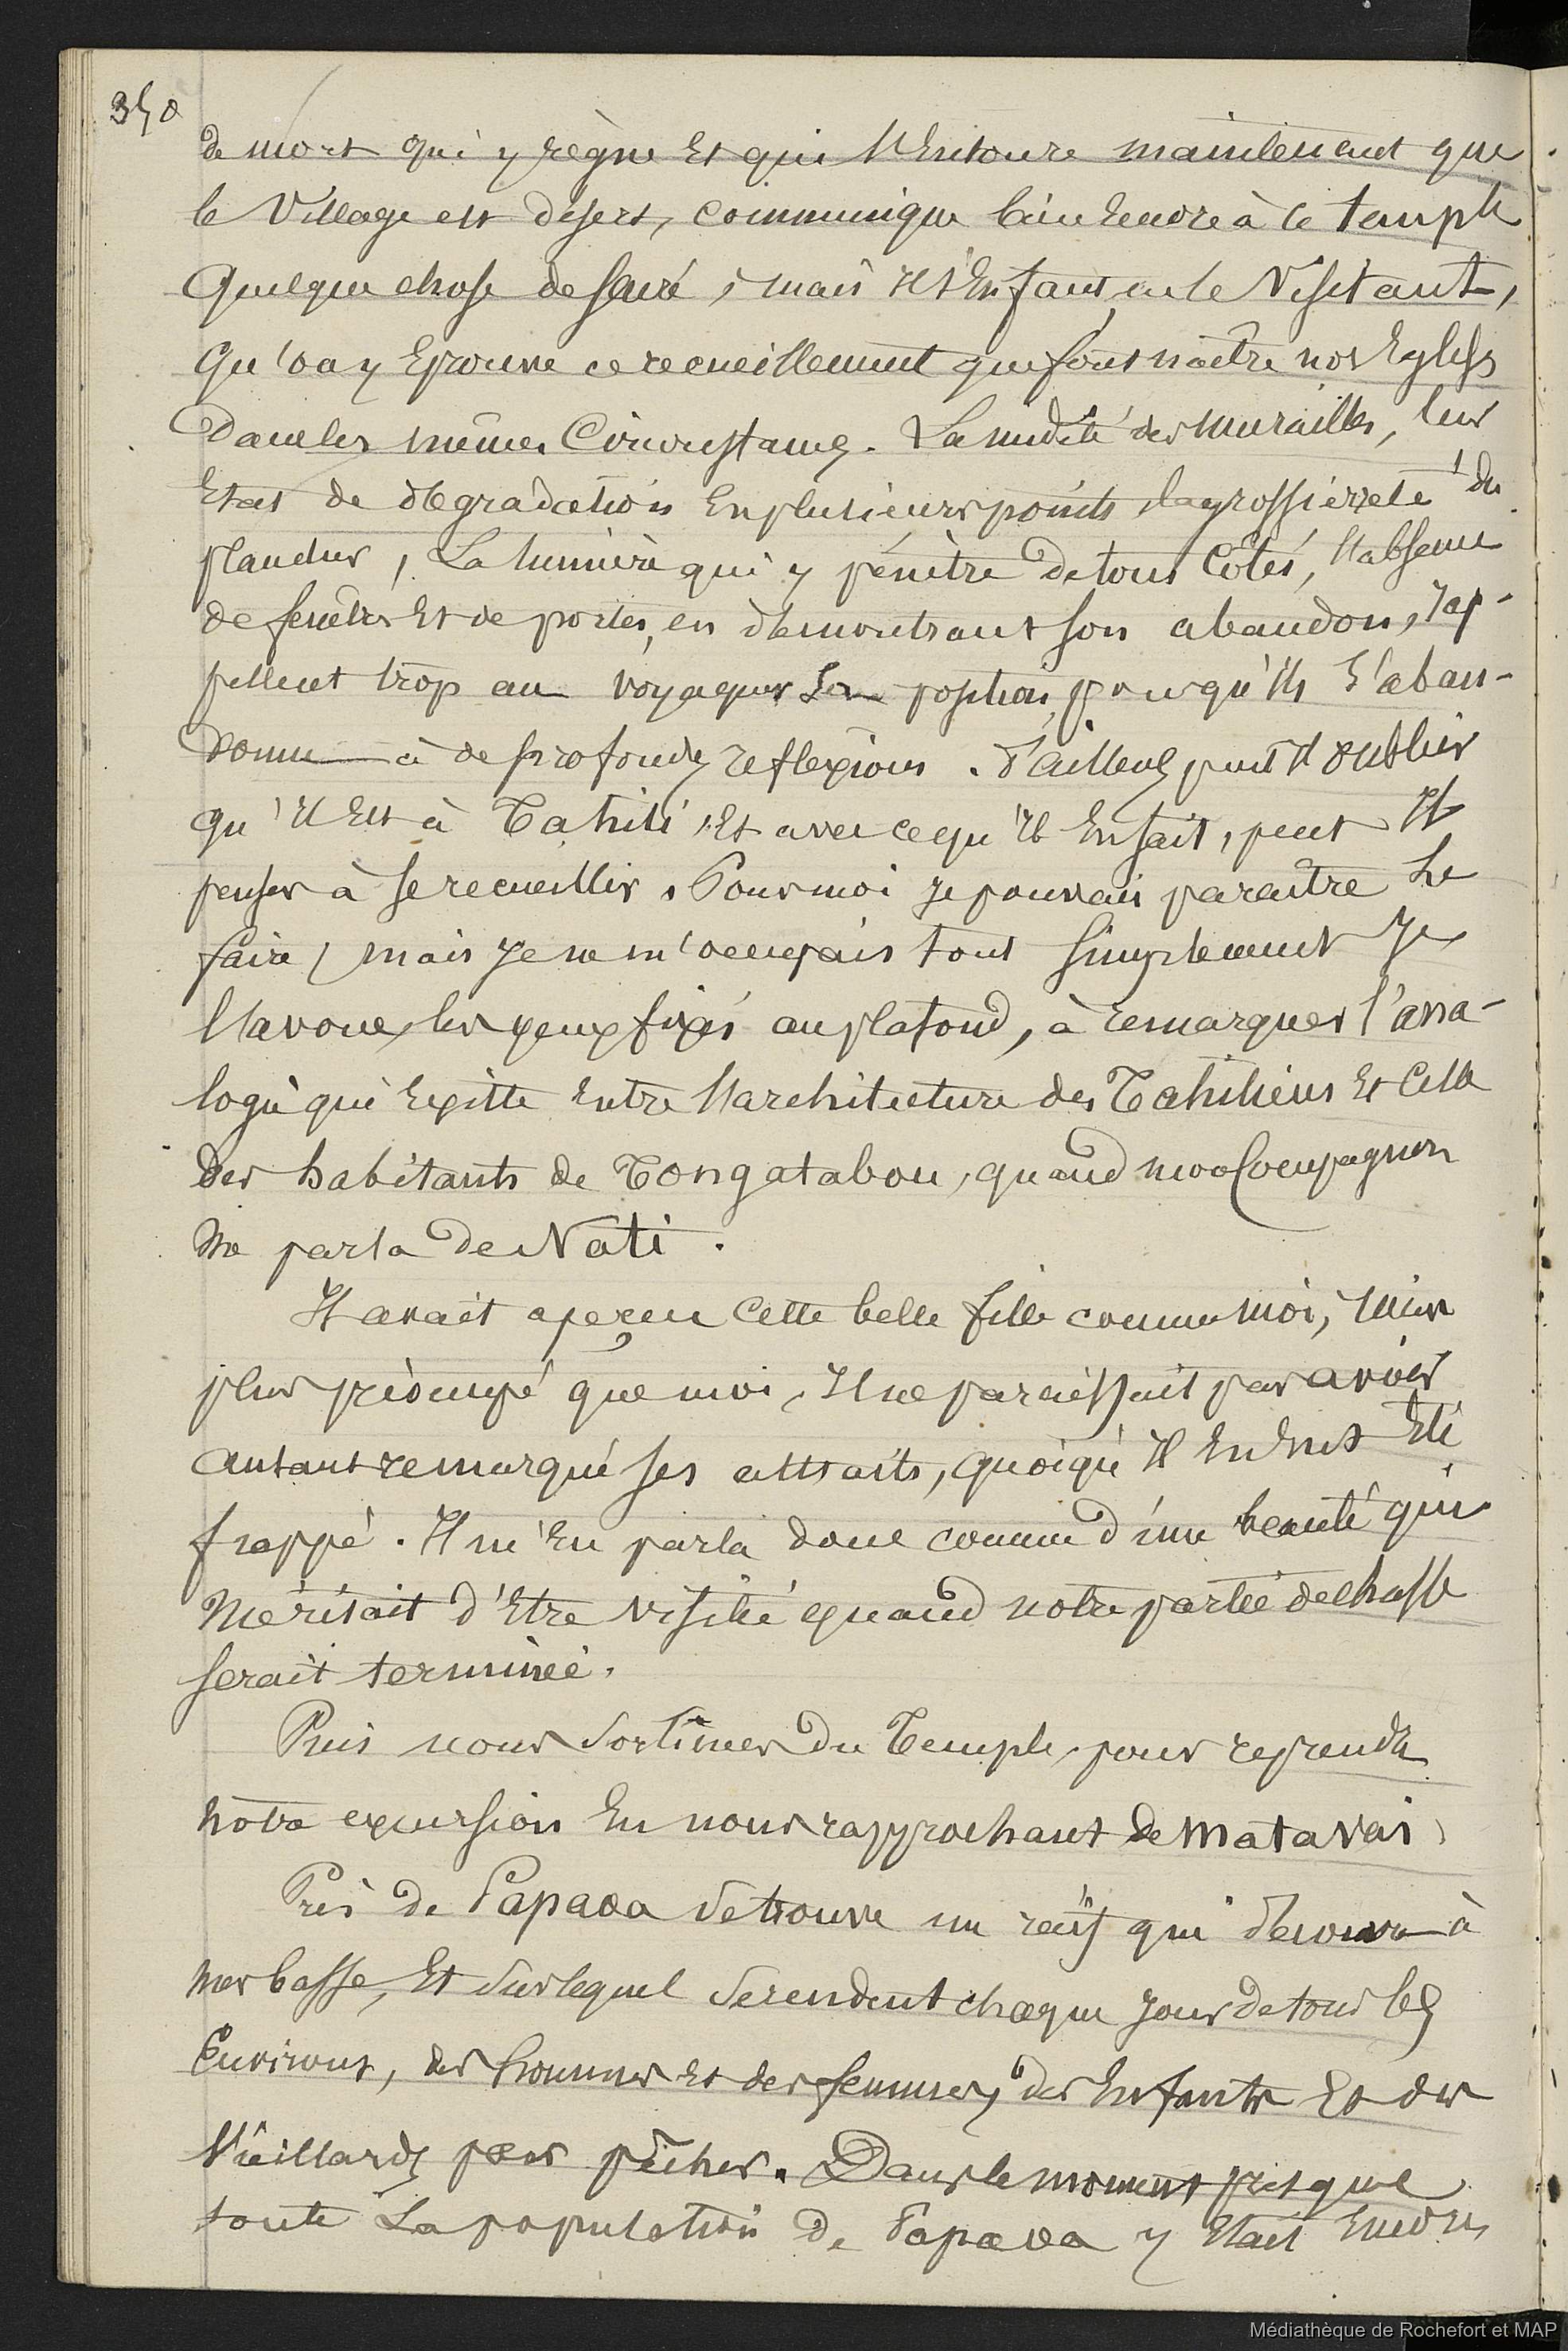 350
de mort qui y règne Et qui l'Entoure maintenant que
le Village est désert, communique bien Encore à ce temple
Quelque chose de sacré, mais il s'En faut, en le Visitant,
Qu'on y Eprouve ce recueillement que font naître nos Eglises
Dans les mêmes Circonstances. La nudité des murailles, leur
Etat de dégradation En plusieurs points, la grossièreté du
plancher, La lumière qui y pénètre de tous Côtés, l'absence
de fenêtres Et de portes, en démontrant son abandon, rap-
pellent trop au voyageur Sa position, pour qu'ils S'aban-
donne à de profondes reflexions. D'ailleurs peut Il oublier
qu'il Est à Tahiti, Et avec ce qu'il En sait, peut Il
penser à se recueillir. Pour moi je pouvais paraître Le
faire, mais je ne m'occupais tout simplement Je
l'avoue, les yeux fixés au plafond, à remarquer l'ana-
logie qui Existe Entre l'architecture des Tahitiens Et Celle
des habitants de Tongatabou, quand mon Compagnon
Me parla de Nati.
Il avait aperçu Cette belle fille comme moi, mais
plus préoccupé que moi, Il ne paraissait pas avoir
autant remarqué ses attraits, quoiqu'Il En Eut Eté
frappé. Il m'En parla donc comme d'une beauté qui
Méritait d'Etre visitée quand notre partie de chasse
serait terminée.
Puis nous Sortîmes du Temple, pour reprendre
notre excursion En nous rapprochant de Matavai.
Près de Papaoa se trouve un récif qui découvre à
mer basse, Et sur lequel se rendent chaque jour de tous les
Environs, des hommes Et des femmes, des Enfants Et des
Vieillards pour pêcher. Dans le moment presque
toute La population de Papaoa y Etait Encore,
Médiathèque de Rochefort et MAP